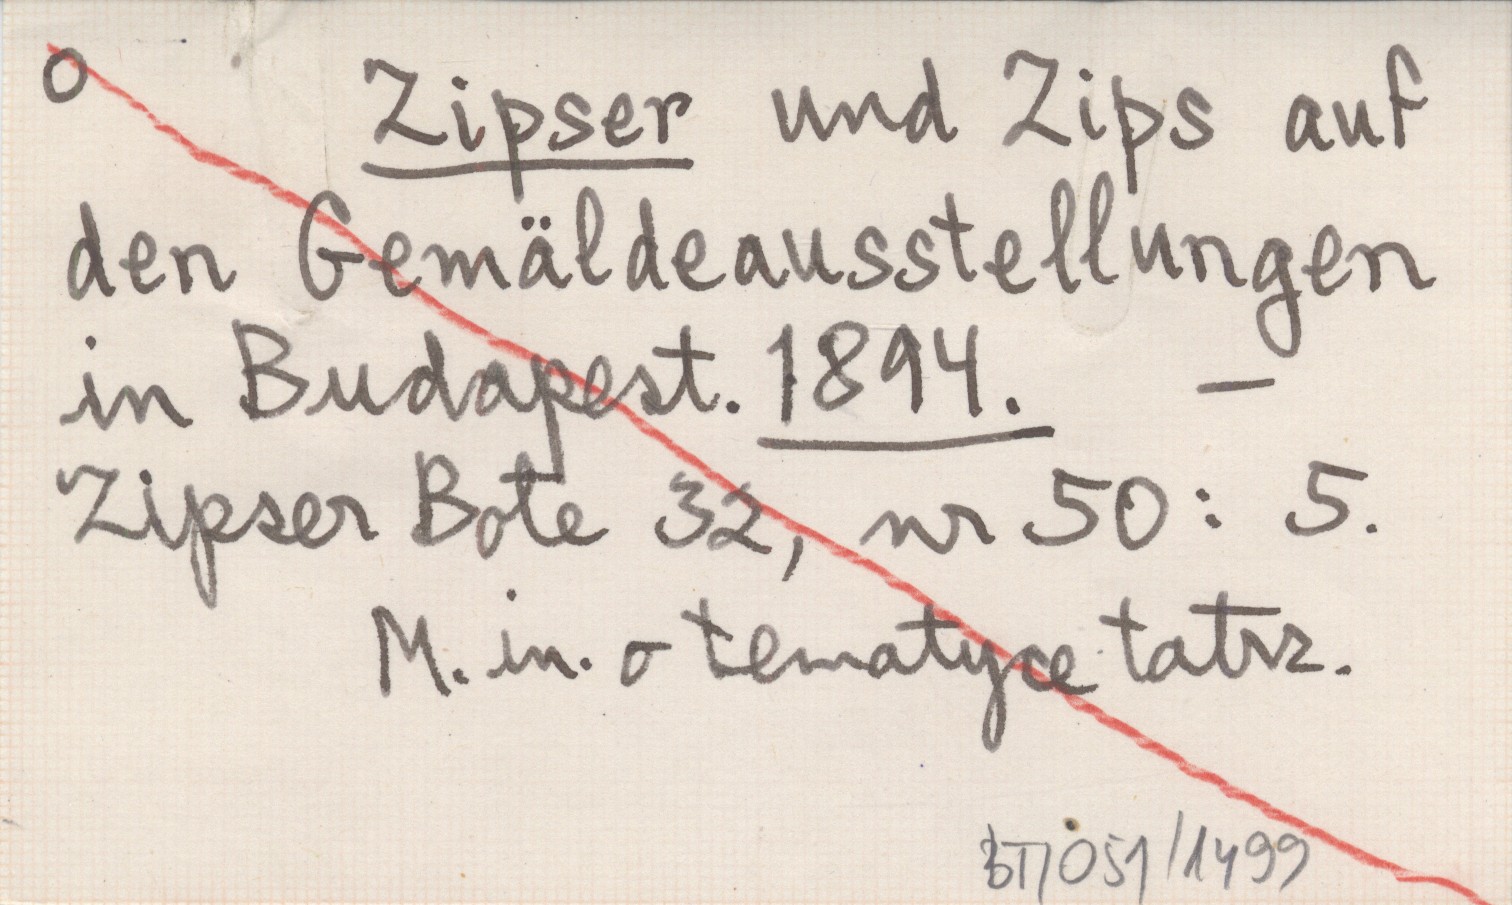 o Zipser und Zips auf
den Gemäldeausstellungen
in Budapest. 1894. —
Zipser Bote 32, nr 50: 5.
M. in. o tematyce tatrz.
BT/051/1499